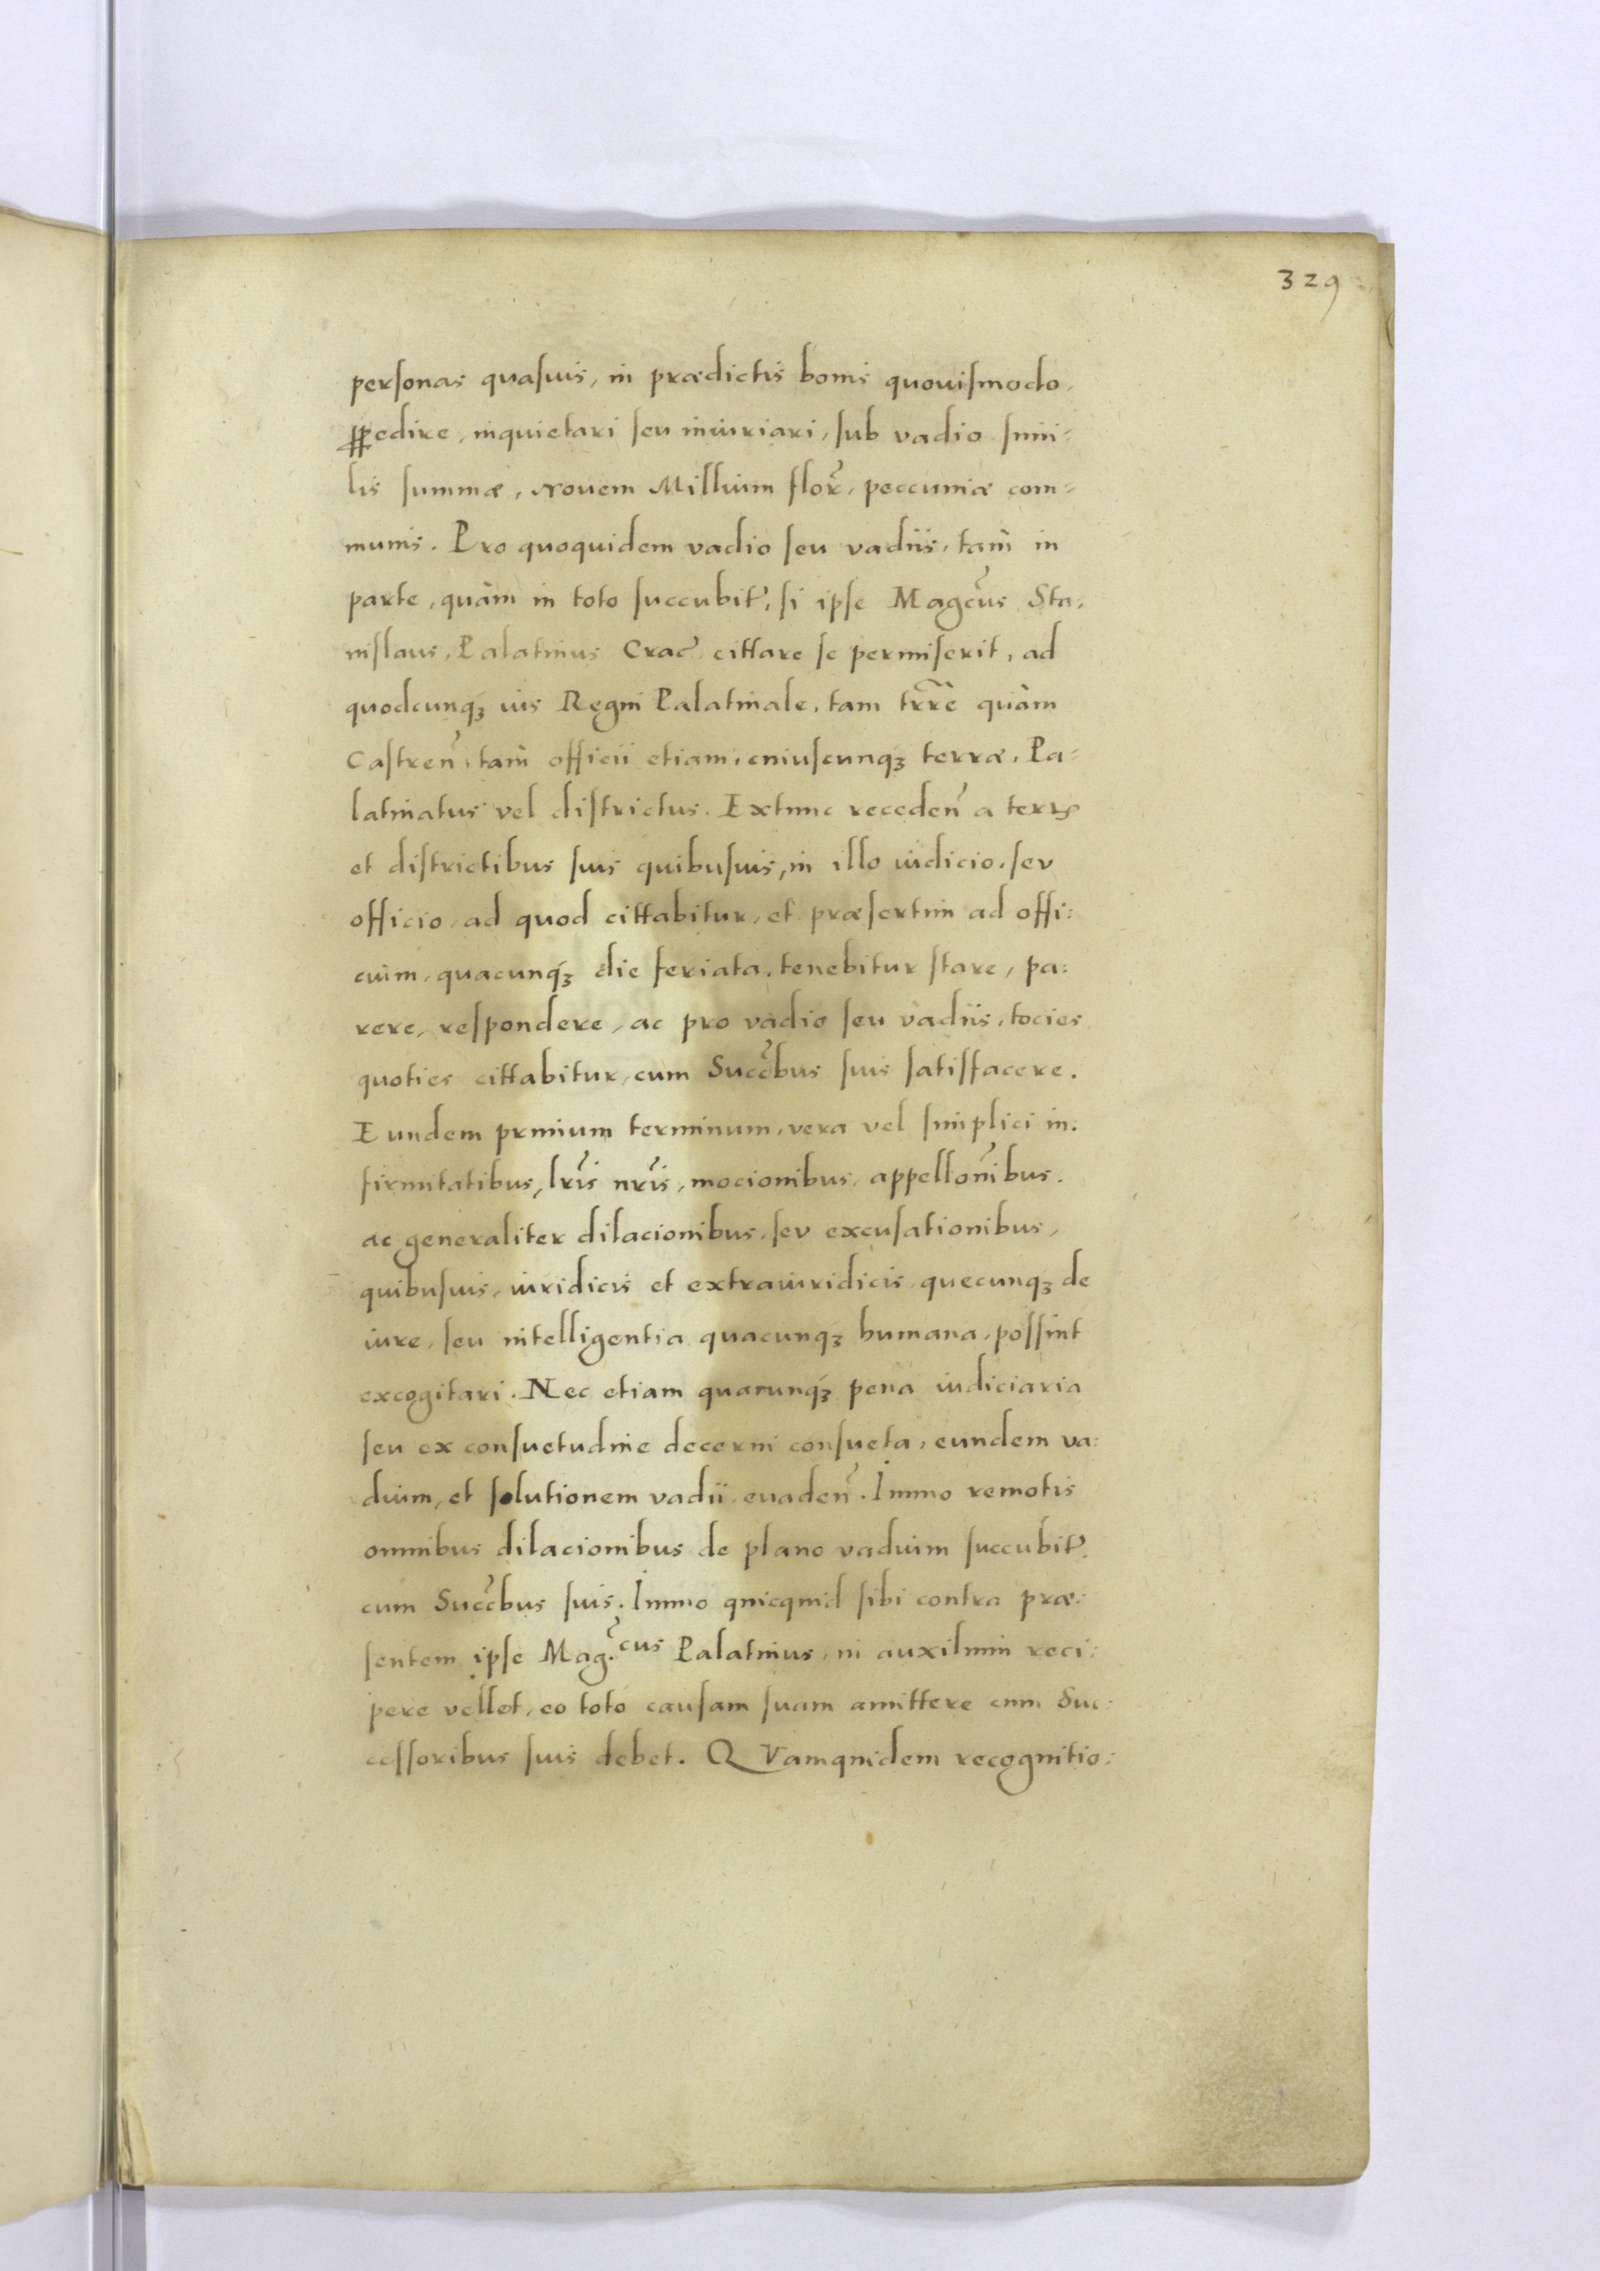 329
personas quasuis, in prædictis bonis quouismodo,
ꝓpedire, inquietari seu iniuriari, sub vadio simi-
lis summæ, Nouem Millium flor̃, peccuniæ com-
munis. Pro quoquidem vadio seu vadiis, tam̀ in
parte, quàm in toto succubit᷑, si ipse Magc̃us Sta-
nislaus, Palatinus Crac̃ cittare se permiserit, ad
quodcunqꝫ ius Regni Palatinale, tam tr̃rẽ quàm
Castreñ, tam̀ officii etiam, cuiuscunqꝫ terræ, Pa-
latinatus vel districtus. Extunc recedeñ a terrꝭ
et districtibus suis quibusuis, in illo iudicio, seu
officio, ad quod cittabitur, et præsertim ad offi-
cium, quacunqꝫ die feriata, tenebitur stare, pa-
rere, respondere, ac pro vadio seu vadiis, tocies
quoties cittabitur, cum Succ̃bus suis satisfacere.
Eundem prmium terminum, vera vel simplici in-
firmitatibus, lr̃is nr̃is, mocionibus, appelloñibus,
ac generaliter dilacionibus, seu excusationibus,
quibusuis, iuridicis et extraiuridicis, quecunqꝫ de
iure, seu intelligentia quacunqꝫ humana, possint
excogitari. Nec etiam quacunqꝫ pena iudiciaria
seu ex consuetudine decerni consueta, eundem va-
dium, et solutionem vadii euadeñ. Immo remotis
omnibus dilacionibus de plano vadium succubit᷑
cum Succ̃bus suis. Immo quicquid sibi contra præ-
sentem ipse Mag.cus Palatinus, in auxilium reci-
pere vellet, eo toto causam suam amittere cum Suc-
cessoribus suis debet. QVamquidem recognitio-